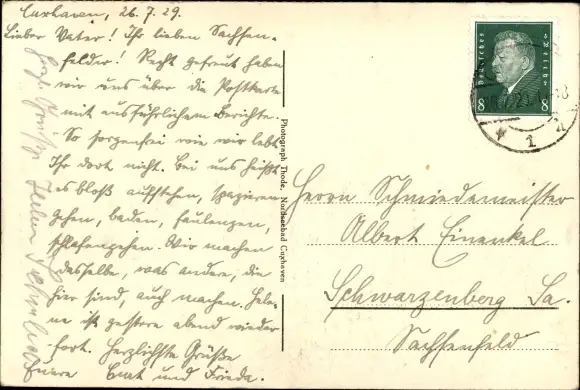 Cuxhaven, 26.7.29.
Lieber Vater! Ihr lieben Sachsen-
felder! Recht gefreut haben
wir uns über die Postkarte
mit ausführlichem Berichte.
So sorgenfrei wie wir lebt
Ihr dort nicht. Bei uns heißt
es bloß aufstehen, spazieren
gehen, baden, faulenzen,
schlafengehen. Wir machen
dasselbe, was andere, die
hier sind, auch machen. Hele-
ne ist gestern abend wieder
fort. Herzlichste Grüße
Eure und Frieda.
Herzl. Grüße
Photograph Thode, Nordseebad Cuxhaven
Deutsches Reich
8 8
Herrn Schmiedemeister
Albert Einenkel
Schwarzenberg Sa.
Sachsenfeld